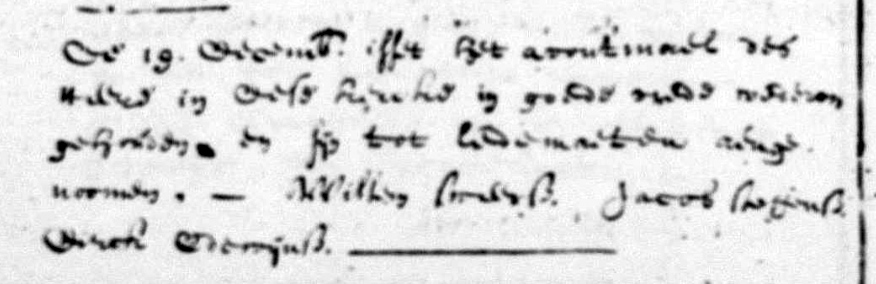 De 19. Decemb. isset het avontmael des
Heere in dese kercke in goede vrede wederom
gehouden. en sijn tot ledematen aenge
noomen. — Willem Jacob
Dirck